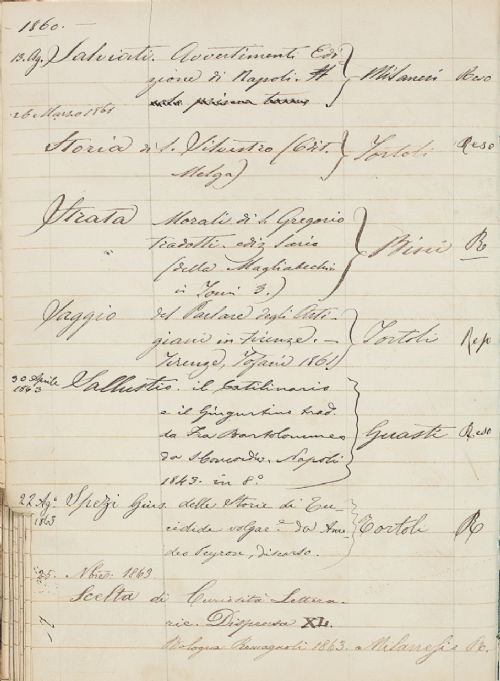 1860.
13. Ag. Salviati. Avvertimenti Edi-
zione di Napoli.
Milanesi Reso
26 Marzo 1861
Storia di S. Silvestro (Edit.
Melga)
Tortoli Reso
Strata Morali di S. Gregorio
tradotti. ediz.
(della Magliabechia
in Tomi 3.)
Bini R
Saggio del Parlare degli Arti-
giani in Firenze. —
Firenze, 1861)
Tortoli
30 Aprile
1863
Sallustio. il Catilinario
e il Giugurtino trad.
da Fra Bartolommeo
da S. Concordio. Napoli
1843. in 8º
Guasti Reso
22 Agº
1863
Spezi Gius. delle Storie di Tu-
cidide volgar.e da Ame-
deo Peyron, discorso.
Tortoli R
25. Nbre. 1863
Scelta di Curiosità Lettera-
rie. Dispensa XL.
Bologna Romagnoli 1863. a Milanesi R.